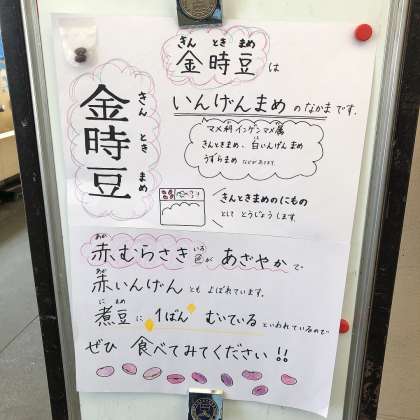 金時豆
きん とき まめ
きん とき まめ
金時豆 は
いんげんまめ のなかまです。
マメ科 インゲンマメ属
きんときまめ、白いんげんまめ
うずらまめ などがあります。
きんときまめのにもの
として とうじょうします。
あか いろ
赤むらさき 色が あざやか で
あか
赤いんげん とも よばれています。
に まめ
煮豆 に 1ばん むいている といわれているので
ぜひ 食べてみてください!!